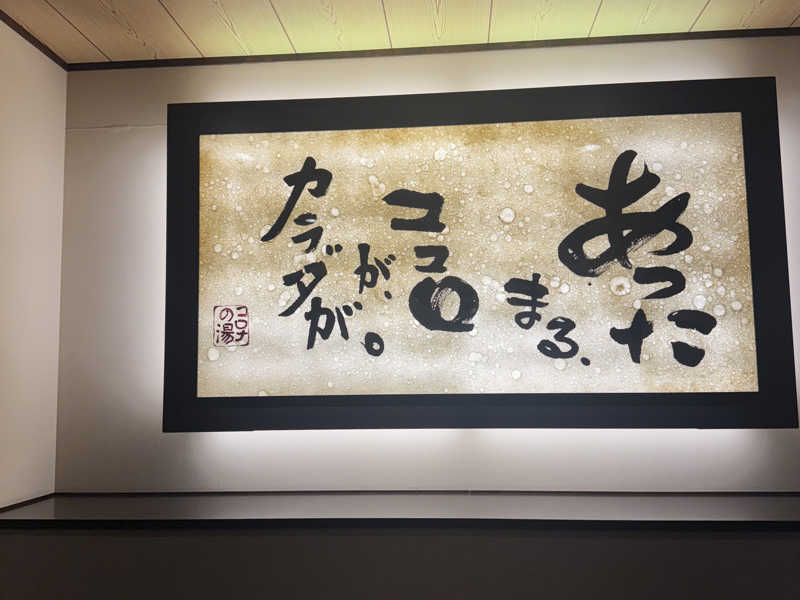 あったか
まる、
ココロ
が、
カラダ
が。
コロナ
の湯